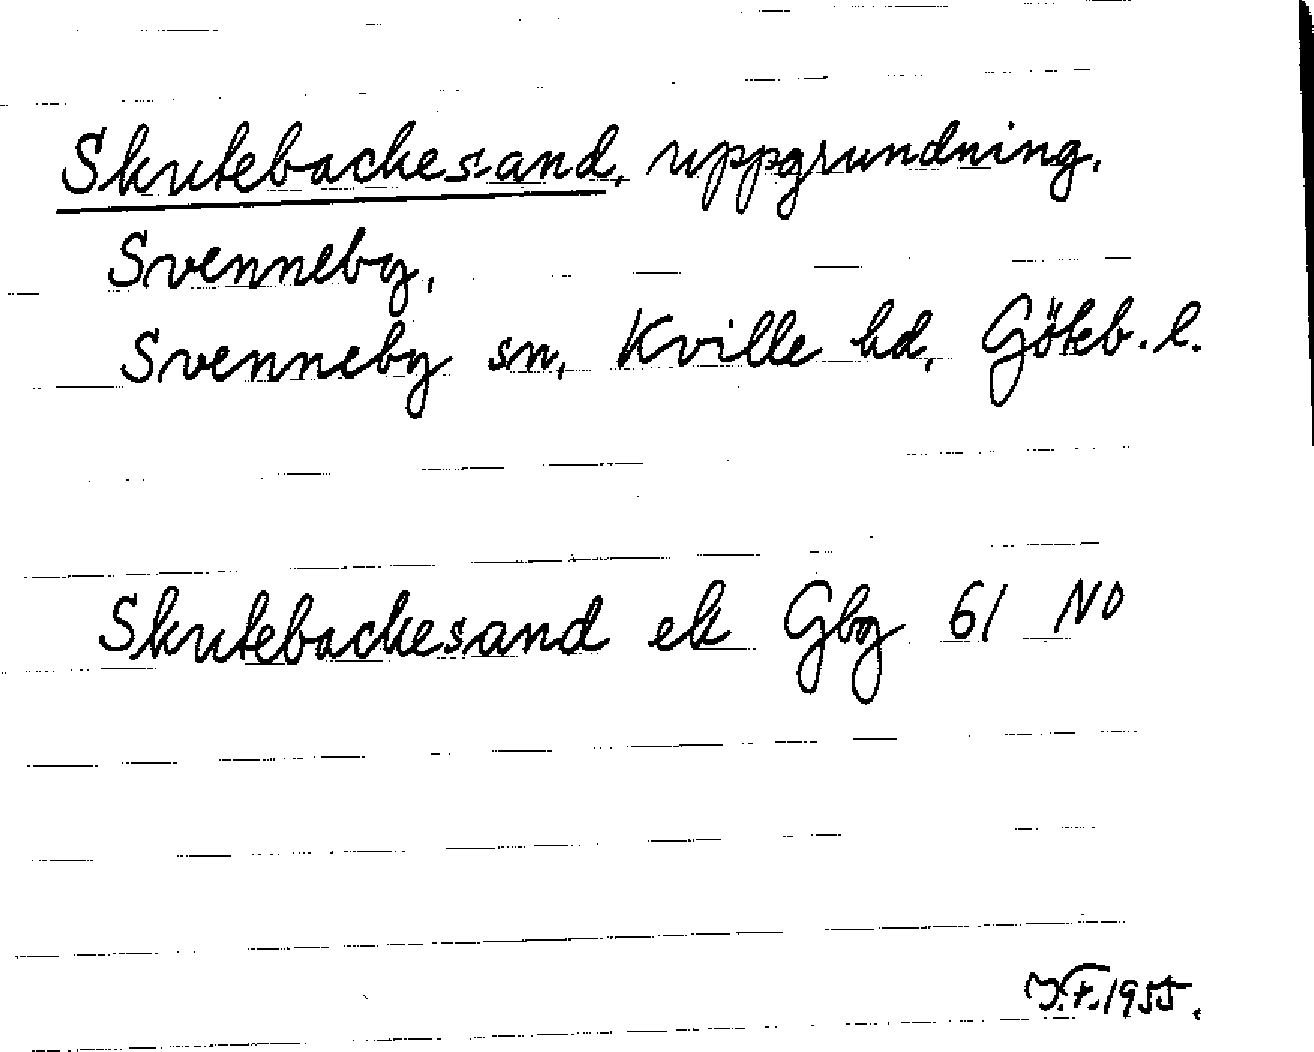 Skutebackesand, uppgrundning.
Svenneby,
Svenneby sn, Kville hd, Göteb. l.
Skutebackesand ek Gbg 61 NO
J.F. 1955.